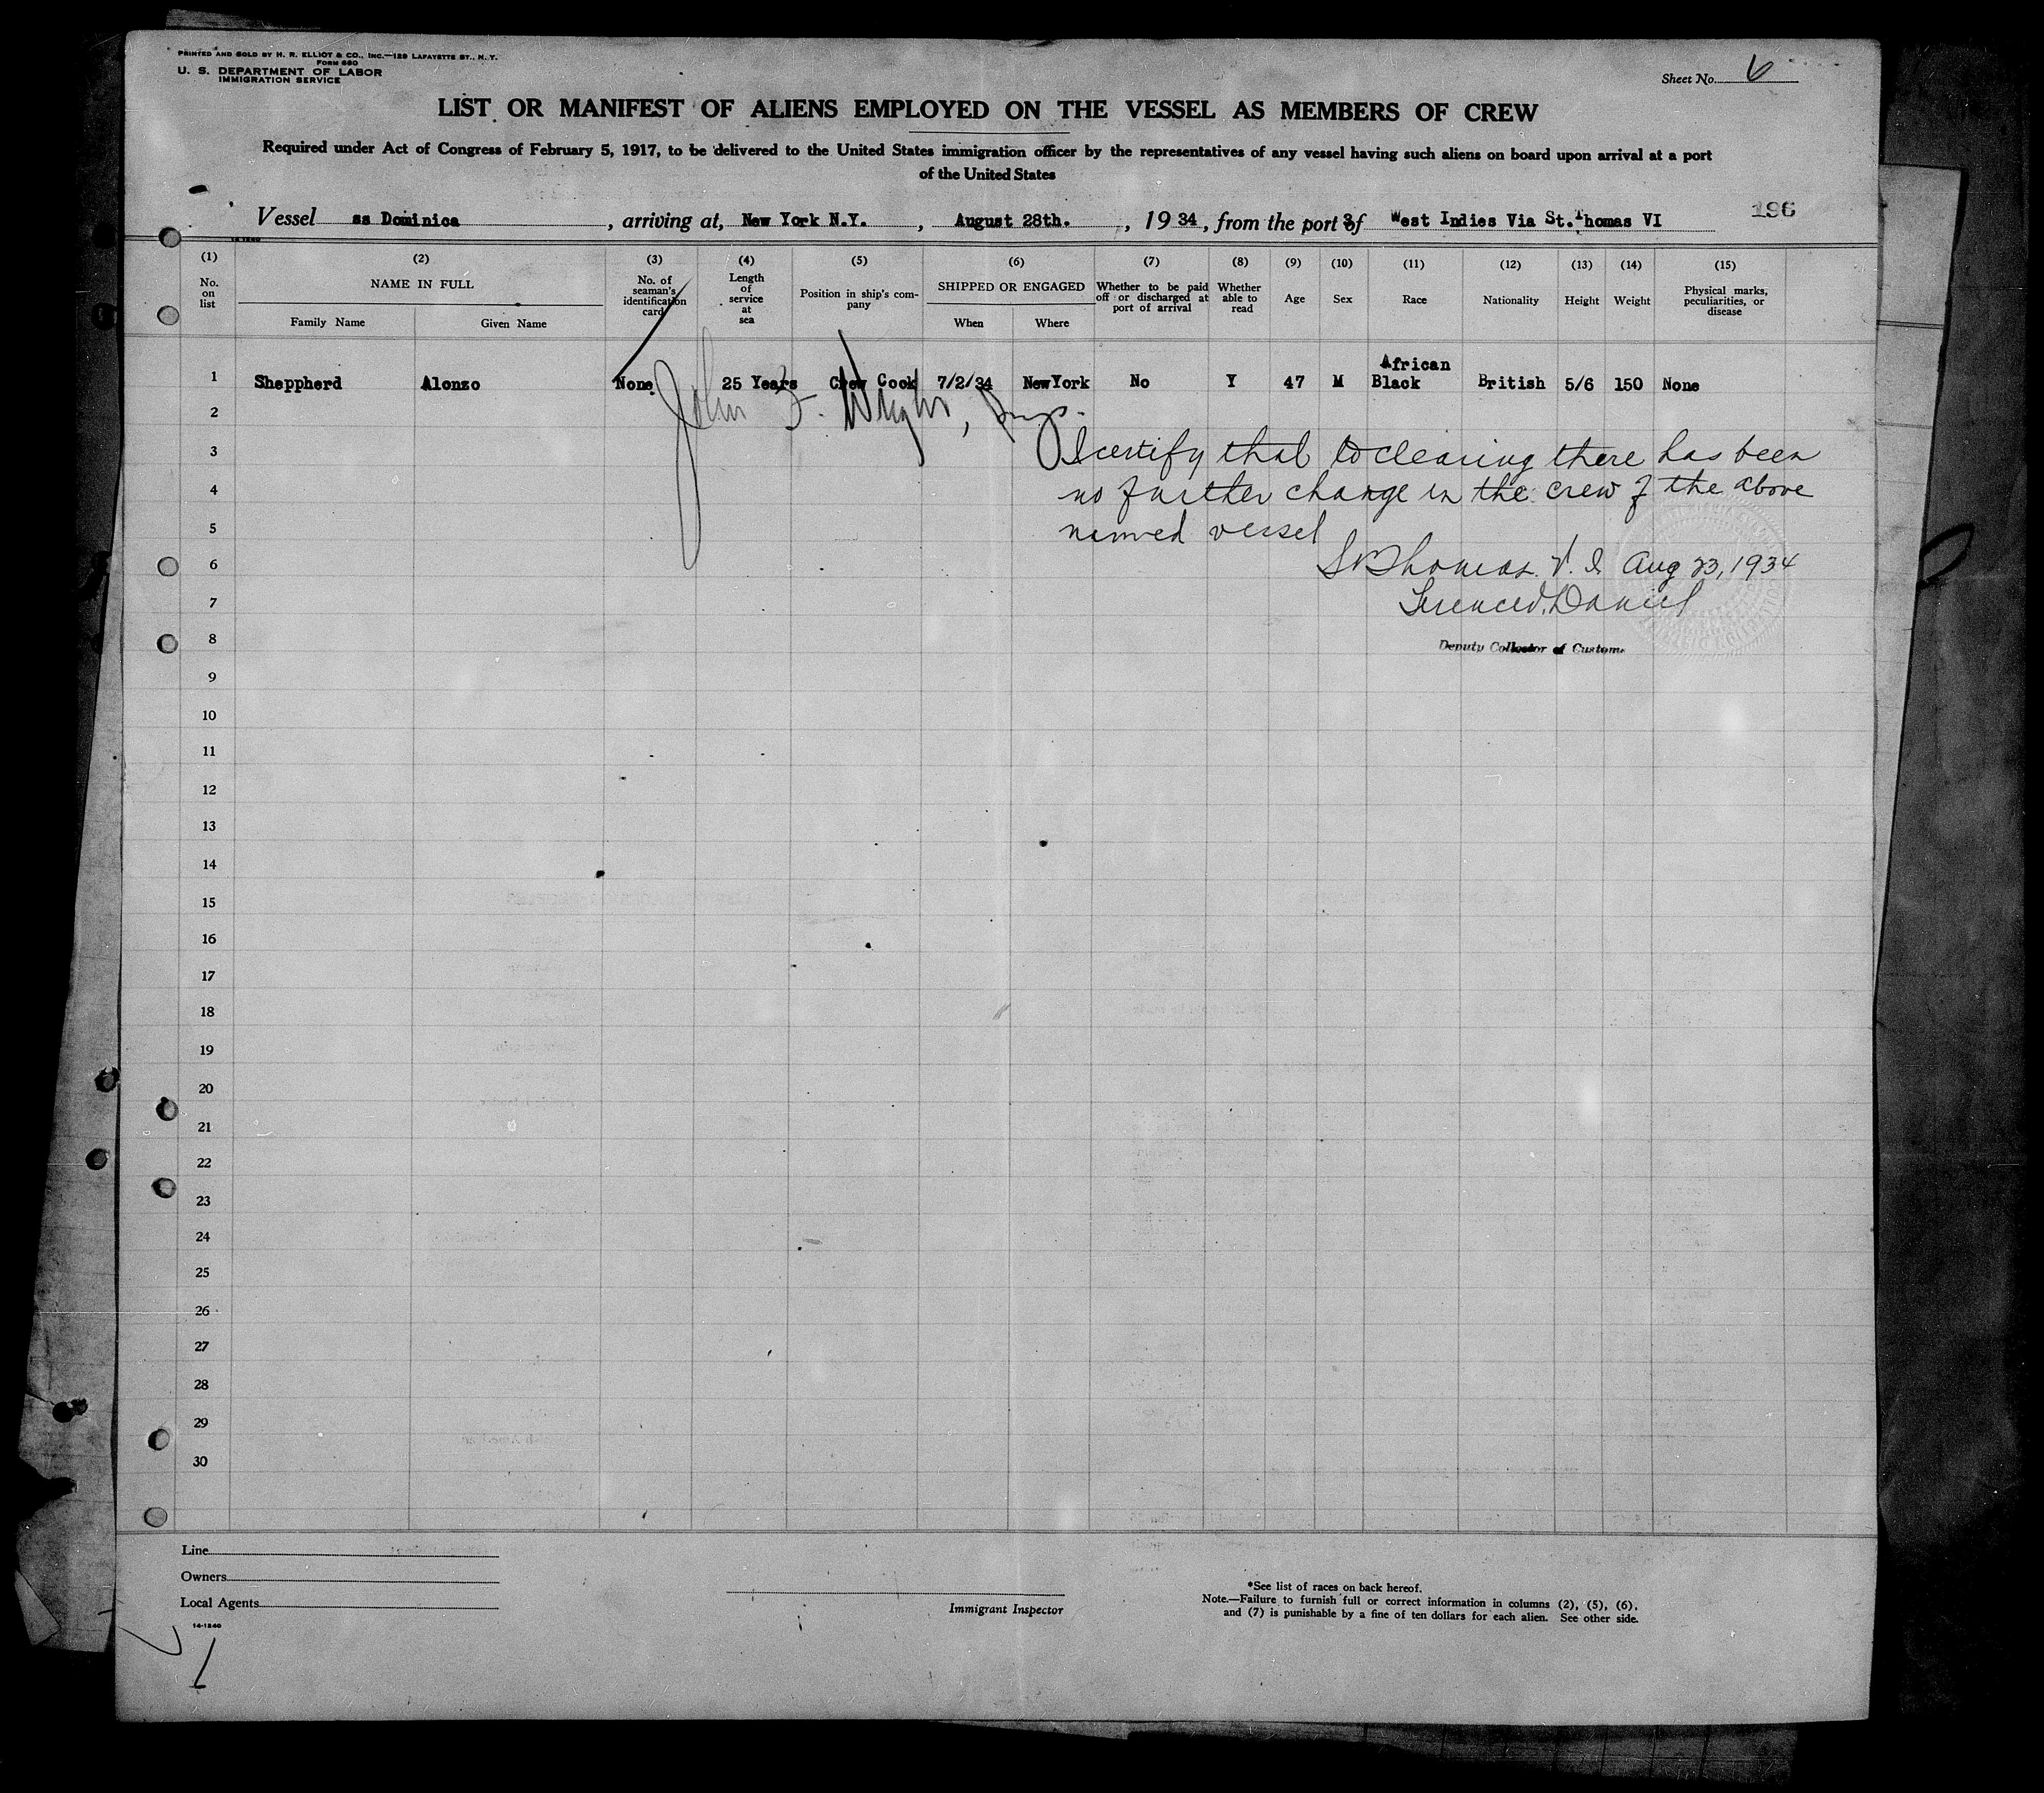 PRINTED AND SOLD BY H. R. ELLIOT & CO., INC.—129 LAFAYETTE ST., N. Y.
FORM 680
U. S. DEPARTMENT OF LABOR
IMMIGRATION SERVICE
Sheet No. 6
LIST OR MANIFEST OF ALIENS EMPLOYED ON THE VESSEL AS MEMBERS OF CREW
Required under Act of Congress of February 5, 1917, to be delivered to the United States immigration officer by the representatives of any vessel having such aliens on board upon arrival at a port
of the United States
196
Vessel ss Dominica, arriving at, New York N.Y., August 28th., 1934, from the port of West Indies Via St. Thomas VI
14-1240
(1) (2) (3) (4) (5) (6) (7) (8) (9) (10) (11) (12) (13) (14) (15)
No. on list
NAME IN FULL
Family Name Given Name
No. of seaman's identification card
Length of service at sea
Position in ship's company
SHIPPED OR ENGAGED
When Where
Whether to be paid off or discharged at port of arrival
Whether able to read
Age
Sex
Race
Nationality
Height
Weight
Physical marks, peculiarities, or disease
1 Sheppherd Alonzo None 25 Years Crew Cook 7/2/34 NewYork No Y 47 M African Black British 5/6 150 None
John F. Wright, Insp.
2
3
4
5
6
7
8
9
10
11
12
13
14
15
16
17
18
19
20
21
22
23
24
25
26
27
28
29
30
I certify that to clearing there has been
no further change in the crew of the above
named vessel
St Thomas. V. I. Aug 23, 1934
Daniel
Deputy Collector of Customs
Line
Owners
Local Agents
14-1240
Immigrant Inspector
*See list of races on back hereof.
Note.—Failure to furnish full or correct information in columns (2), (5), (6),
and (7) is punishable by a fine of ten dollars for each alien. See other side.